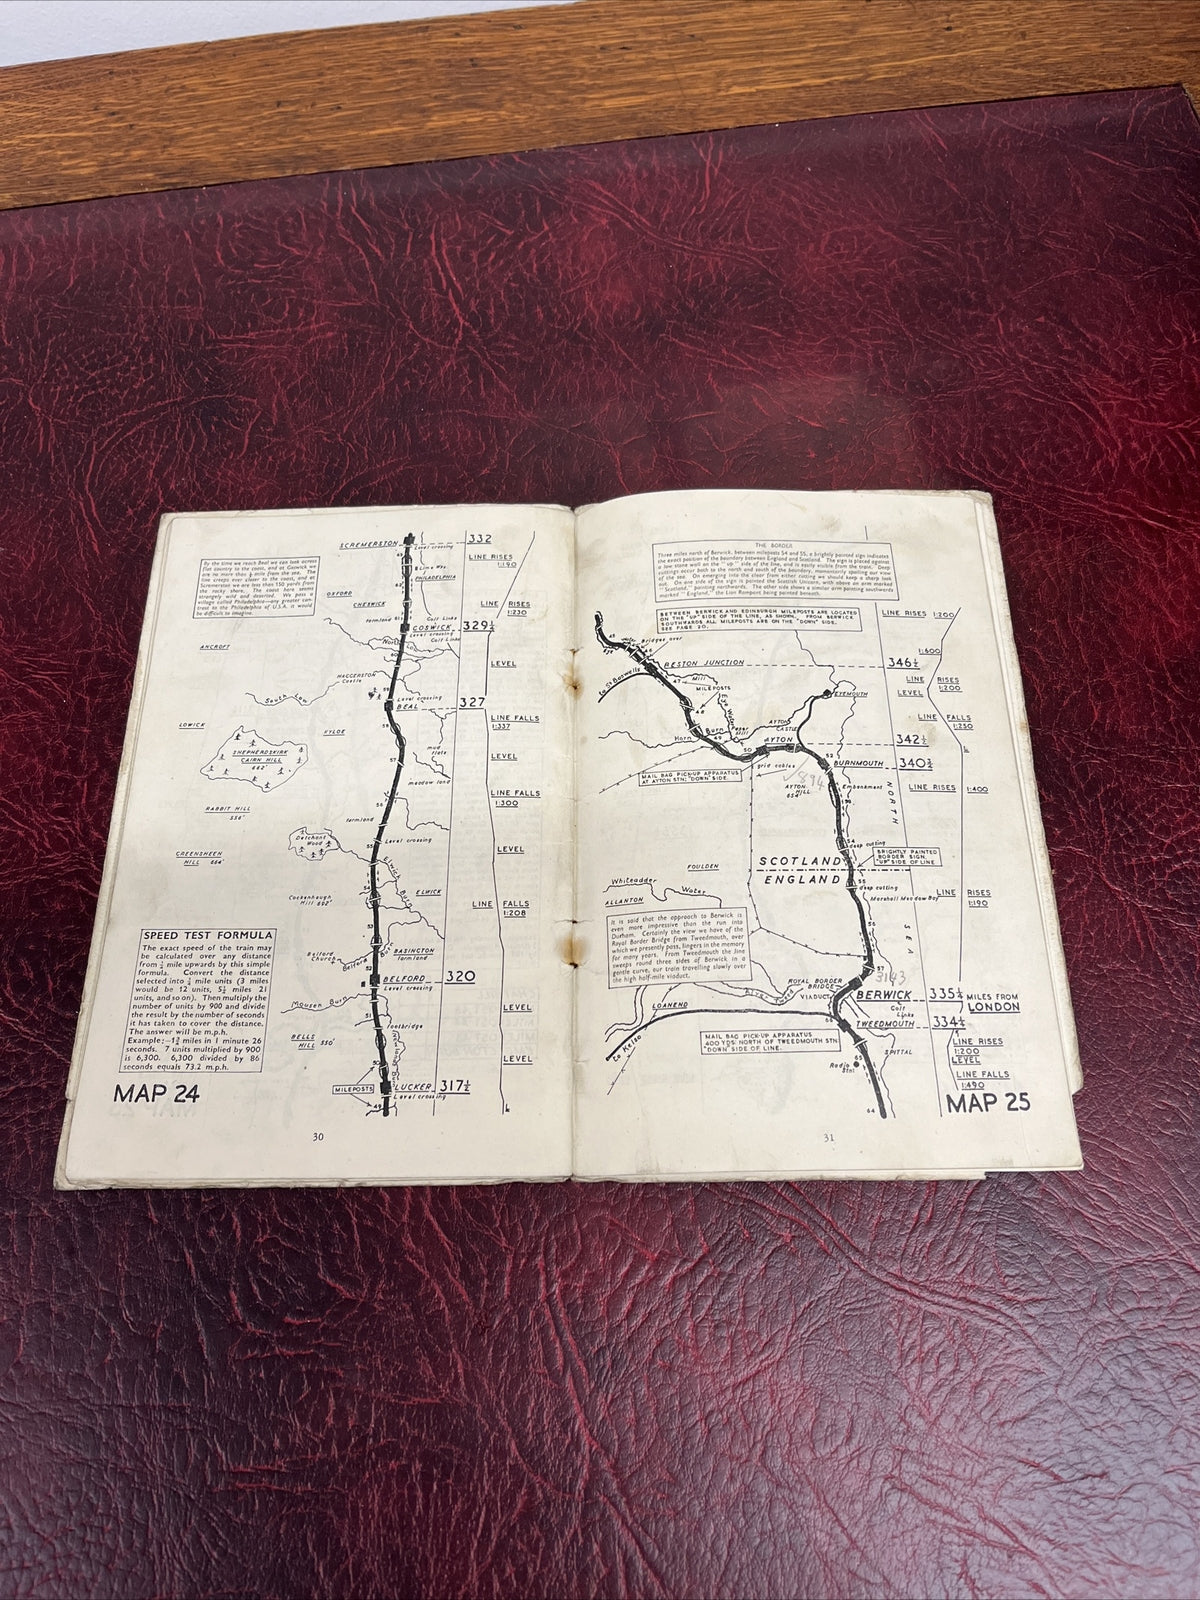 SCREMERSTON
332
Level crossing
LINE RISES
1:190
By the time we reach Beal we can look across
flat country to the coast, and at Goswick we
are no more than ½ mile from the sea. The
line creeps ever closer to the coast, and at
Scremerston we are less than 350 yards from
the rocky shore. The coast here seems
strangely wild and deserted. We pass a
village called Philadelphia—any greater con-
trast to the Philadelphia of U.S.A. it would
be difficult to imagine.
Lime Wks.
PHILADELPHIA
OXFORD
CHESWICK
LINE RISES
1:230
farmland
Golf Links
GOSWICK
329¼
Level crossing
Golf Links
ANCROFT
North Low
LEVEL
HAGGERSTON
Castle
South Low
Level crossing
BEAL
327
LINE FALLS
1:337
LOWICK
KYLOE
SHEPHERDSKIRK
CAIRN HILL
662'
mud
flats
57
LEVEL
meadow land
LINE FALLS
1:300
RABBIT HILL
556'
farmland
Detchant
Wood
Level crossing
55
LEVEL
GREENSHEEN
HILL 664'
Elwick Burn
54
ELWICK
Cockenheugh
Hill 692'
LINE FALLS
1:208
53
EASINGTON
farmland
Belford
Church
Belford Burn
52
BELFORD
320
Level crossing
Mousen Burn
LEVEL
51
footbridge
BELLS
HILL 350'
50
LEVEL
MILEPOSTS
LUCKER
317½
Level crossing
49
SPEED TEST FORMULA
The exact speed of the train may
be calculated over any distance
from ¼ mile upwards by this simple
formula. Convert the distance
selected into ¼ mile units (3 miles
would be 12 units, 5¼ miles 21
units, and so on). Then multiply the
number of units by 900 and divide
the result by the number of seconds
it has taken to cover the distance.
The answer will be m.p.h.
Example:—1¾ miles in 1 minute 26
seconds. 7 units multiplied by 900
is 6,300. 6,300 divided by 86
seconds equals 73.2 m.p.h.
MAP 24
30
THE BORDER
Three miles north of Berwick, between mileposts 54 and 55, a brightly painted sign indicates
the exact position of the boundary between England and Scotland. The sign is placed against
a low stone wall on the "up" side of the line, and is easily visible from the train. Deep
cuttings occur both to the north and south of the boundary, momentarily spoiling our view
of the sea. On emerging into the clear from either cutting we should keep a sharp look
out. On one side of the sign is painted the Scottish Unicorn, with above an arm marked
"Scotland," pointing northwards. The other side shows a similar arm pointing southwards
marked "England," the Lion Rampant being painted beneath.
BETWEEN BERWICK AND EDINBURGH MILEPOSTS ARE LOCATED
ON THE "UP" SIDE OF THE LINE, AS SHOWN. FROM BERWICK
SOUTHWARDS ALL MILEPOSTS ARE ON THE "DOWN" SIDE.
SEE PAGE 20.
LINE RISES 1:200
Bridges over
1:600
RESTON JUNCTION
346¼
to St Boswells
47
Mill
MILEPOSTS
LINE RISES
LEVEL
1:200
EYEMOUTH
48
Eye Water
AYTON
CASTLE
LINE FALLS
1:250
Horn Burn
49
Paper
Mill
AYTON
342½
50
52
BURNMOUTH
340¾
grid cables
MAIL BAG PICK-UP APPARATUS
AT AYTON STN; "DOWN" SIDE.
894
AYTON
HILL
654'
Embankment
LINE RISES
1:400
NORTH
54
deep cutting
BRIGHTLY PAINTED
BORDER SIGN.
"UP" SIDE OF LINE
SCOTLAND
ENGLAND
FOULDEN
55
deep cutting
Whiteadder Water
ALLANTON
Marshall Meadow Bay
LINE RISES
1:190
It is said that the approach to Berwick is
even more impressive than the run into
Durham. Certainly the view we have of the
Royal Border Bridge from Tweedmouth, over
which we presently pass, lingers in the memory
for many years. From Tweedmouth the line
sweeps round three sides of Berwick in a
gentle curve, our train travelling slowly over
the high half-mile viaduct.
56
SEA
57
3143
River Tweed
ROYAL BORDER
BRIDGE
VIADUCT
BERWICK
335¼
MILES FROM
LONDON
LOANEND
Golf
Links
TWEEDMOUTH
334¼
to Kelso
MAIL BAG PICK-UP APPARATUS
400 YDS NORTH OF TWEEDMOUTH STN
"DOWN" SIDE OF LINE.
LINE RISES
1:200
LEVEL
SPITTAL
65
Radio
Stn
LINE FALLS
1:490
64
MAP 25
31